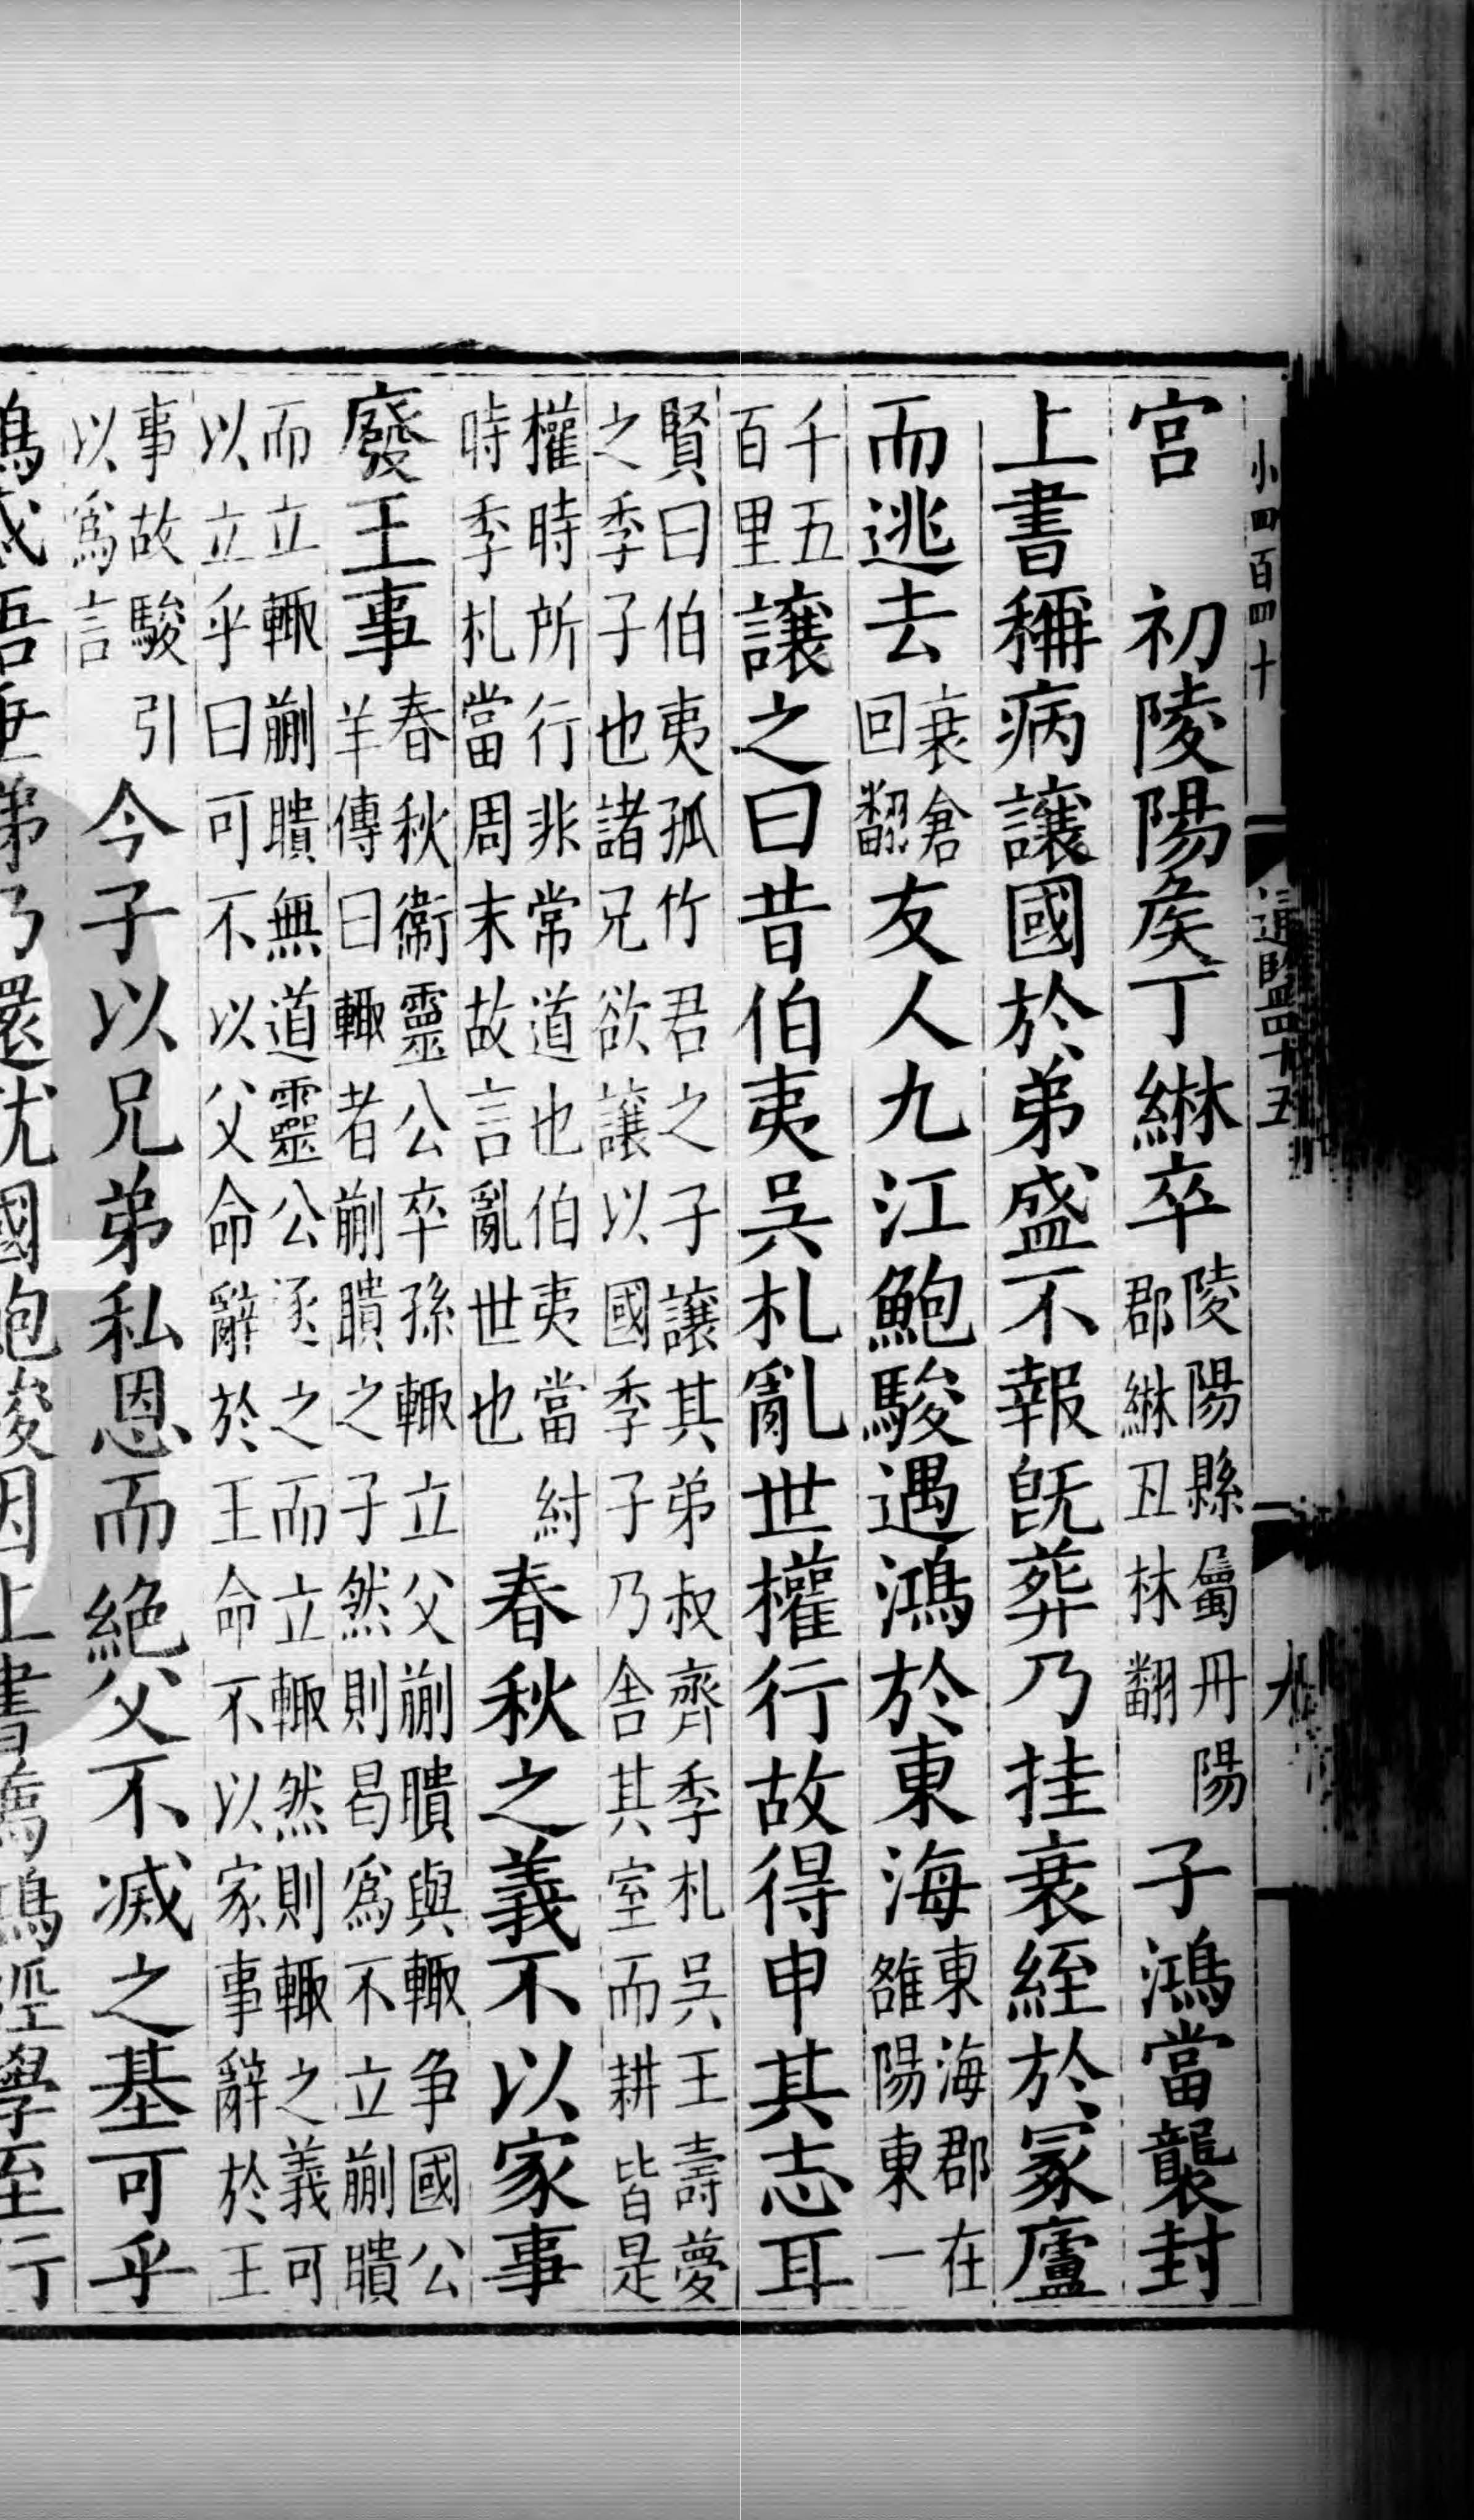 小四百四十 通鑑四十五 九
宮 初陵陽矦丁綝卒陵陽縣屬丹陽郡綝丑林翻子鴻當襲封
上書稱病讓國於弟盛不報旣葬乃挂衰絰於冢廬
而逃去衰倉回翻友人九江鮑駿遇鴻於東海東海郡在雒陽東一
千五百里讓之曰昔伯夷吳札亂世權行故得申其志耳
賢曰伯夷孤竹君之子讓其弟叔齊季札吳王壽夢之季子也諸兄欲讓以國季子乃舍其室而耕皆是
權時所行非常道也伯夷當紂時季札當周末故言亂世也春秋之義不以家事
廢王事春秋衞靈公卒孫輒立父蒯聵與輒争國公羊傳曰輒者蒯聵之子然則曷爲不立蒯聵
而立輒蒯聵無道靈公逐之而立輒然則輒之義可以立乎曰可不以父命辭於王命不以家事辭於王
事故駿引以爲言今子以兄弟私恩而絶父不滅之基可乎
鴻感悟垂涕乃還就國鮑駿因上書薦鴻經學至行